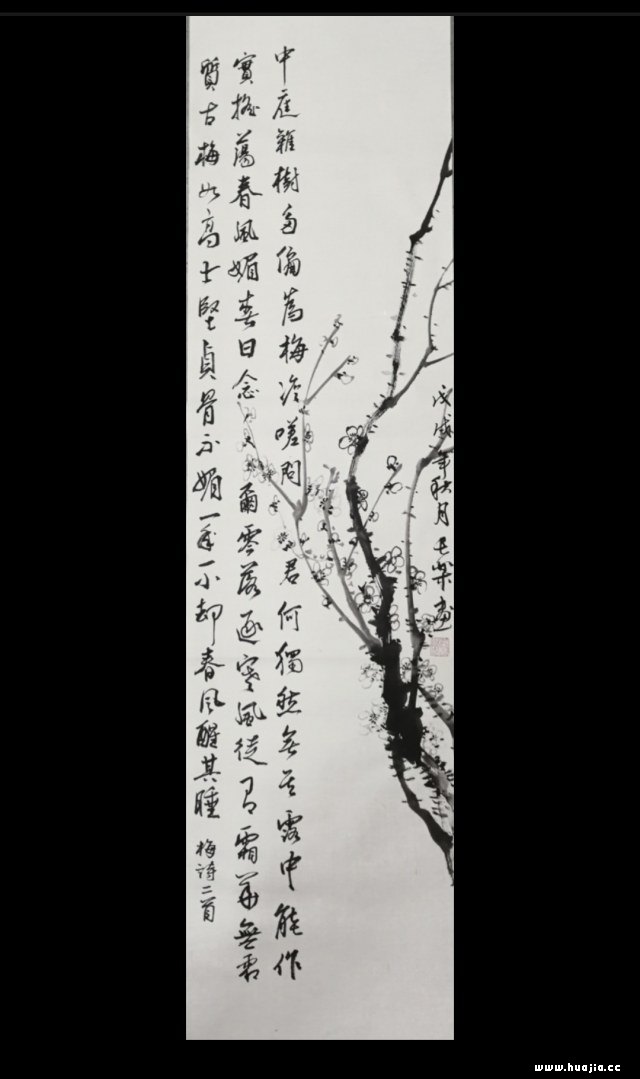 戊戌年秋月畫
中庭雜樹多偏為梅咨嗟問君何獨然其露中能作
實搖蕩春風媚春日念爾零落逐寒風徒有霜華無霜
質古梅如高士堅貞骨不媚一年一小却春風醒其睡
梅詩二首
www.huajia.cc